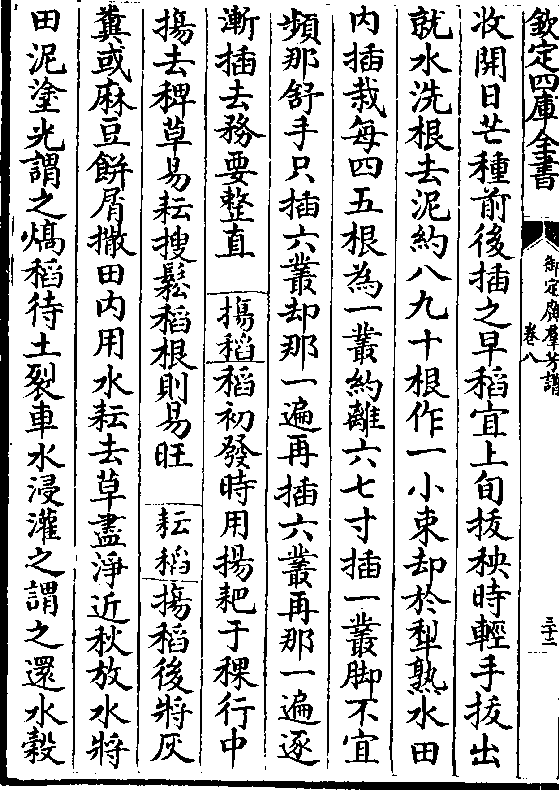 欽定四庫全書
御定廣羣芳譜
卷八
三十二
收開日芒種前後插之早稻宜上旬拔秧時輕手拔出
就水洗根去泥約八九十根作一小束却於犁熟水田
内插栽每四五根為一叢約離六七寸插一叢脚不宜
頻那舒手只插六叢却那一遍再插六叢再那一遍逐
漸插去務要整直　㨰稻稻初發時用揚耙于稞行中
㨰去稗草易耘搜鬆稻根則易旺　耘稻㨰稻後將灰
糞或麻豆餅屑撒田内用水耘去草盡淨近秋放水將
田泥塗光謂之熇稻待土裂車水浸灌之謂之還水穀